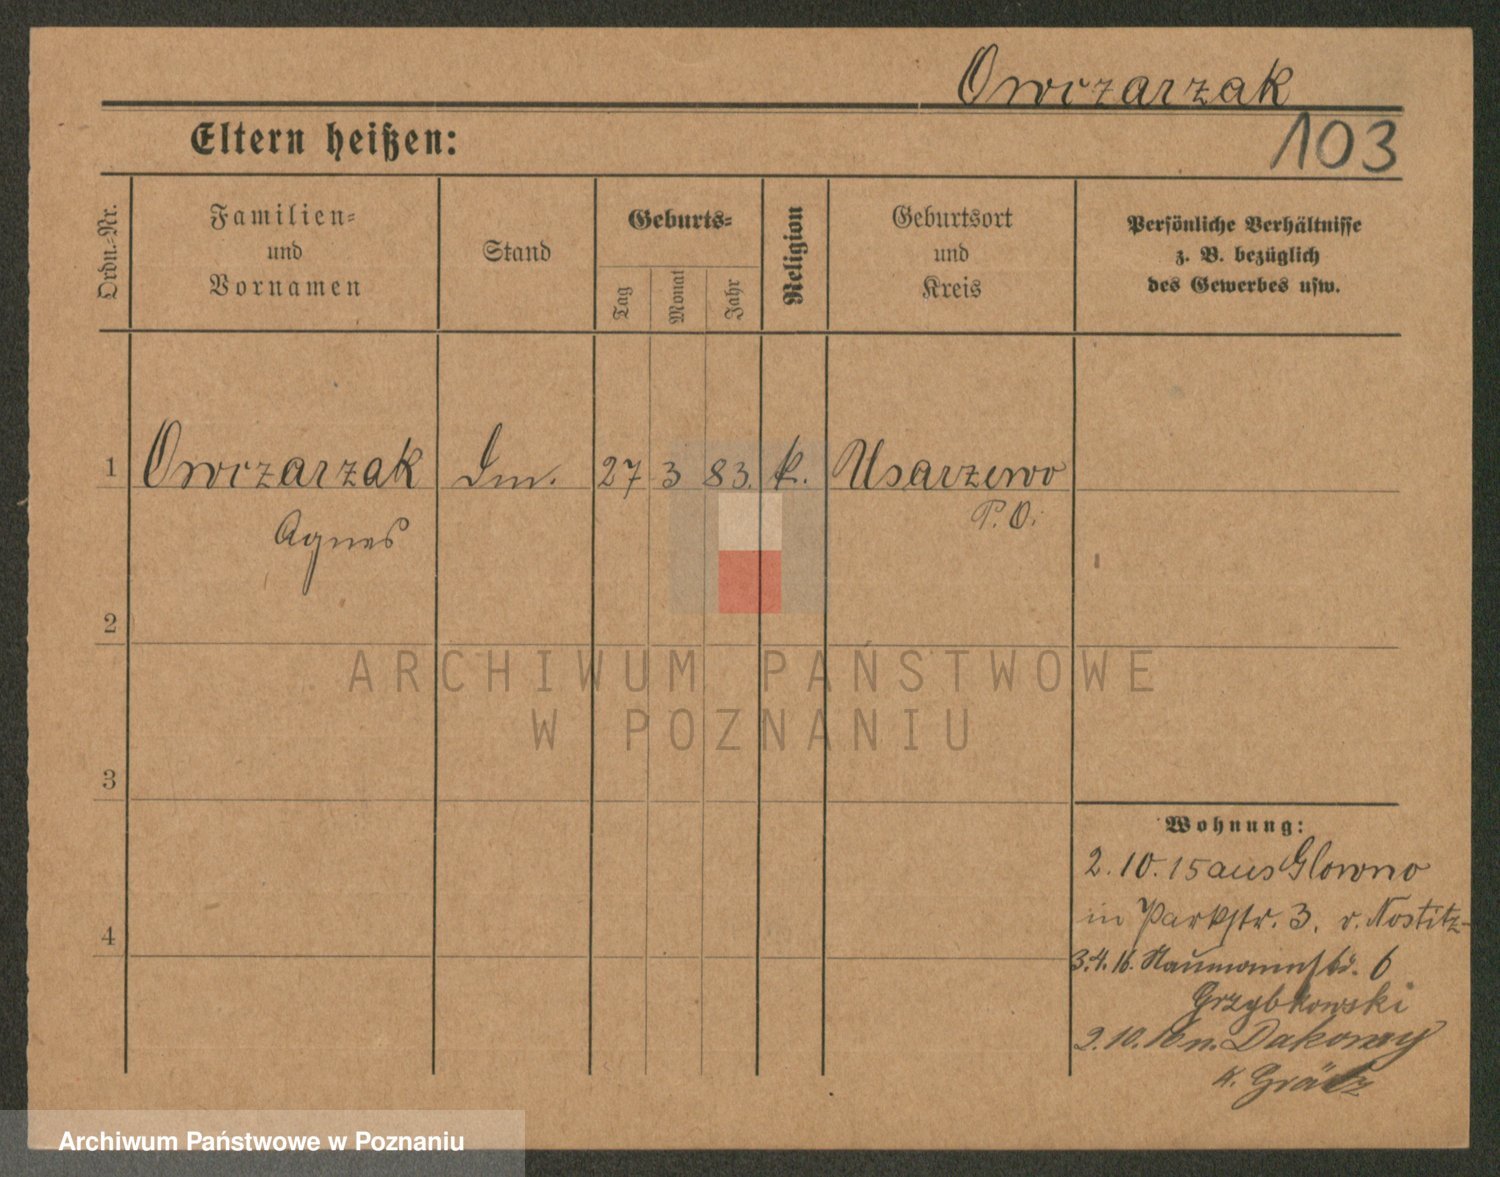 Owczarzak
103
Eltern heißen:
Ordn.-Nr.
Familien-
und
Vornamen
Stand
Geburts-
Tag
Monat
Jahr
Religion
Geburtsort
und
Kreis
Persönliche Verhältnisse
z. B. bezüglich
des Gewerbes usw.
1 Owczarzak 27 3 83. k. Usarzewo
Agnes P. O.
2
ARCHIWUM PAŃSTWOWE
W POZNANIU
3
Wohnung:
2. 10. 15 aus Glowno
in Parkstr. 3. v. Nostitz-
4
3.4.16. Naumannstr. 6
Grzybkowski
2.10.16 n. Dakowy
K. Grätz
Archiwum Państwowe w Poznaniu